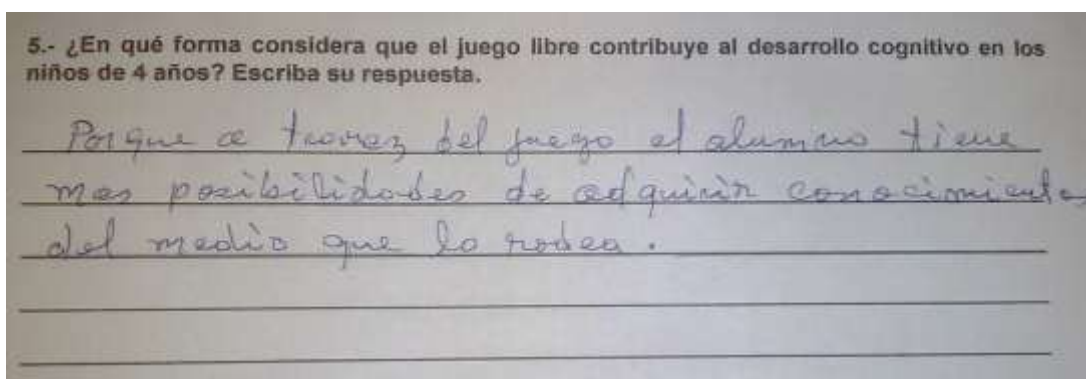 5.- ¿En qué forma considera que el juego libre contribuye al desarrollo cognitivo en los
niños de 4 años? Escriba su respuesta.
Porque a travez del juego el alumno tiene
mas posibilidades de adquirir conocimientos
del medio que lo rodea.